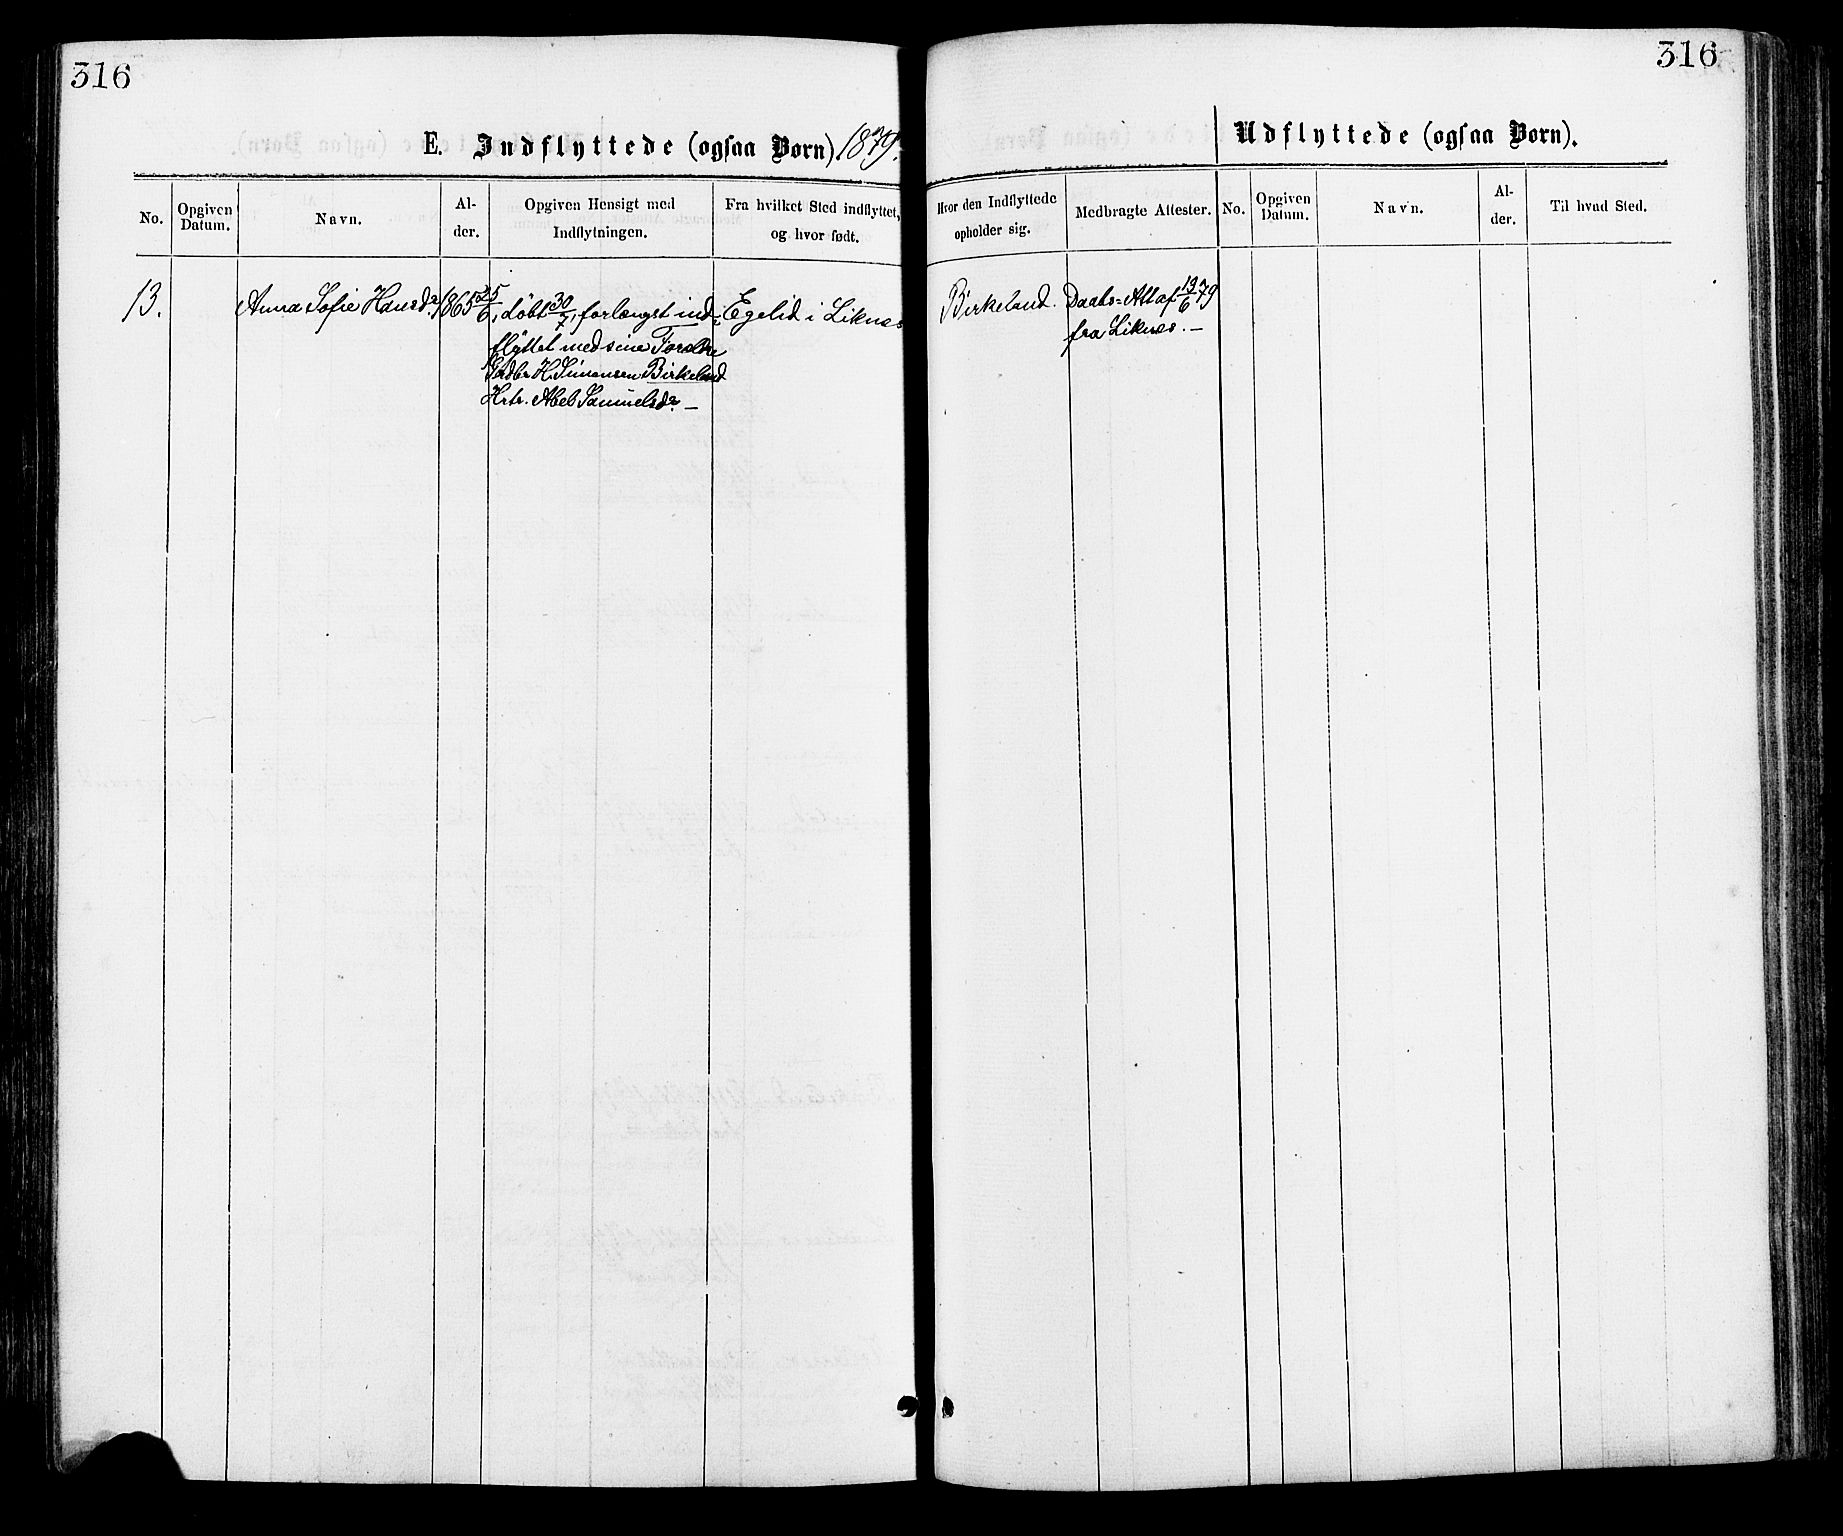 316
316
E. Indflyttede (ogsaa Børn) 1879.
Udflyttede (ogsaa Børn).
No.
Opgiven Datum.
Navn.
Al-
der.
Opgiven Hensigt med
Indflytningen.
Fra hvilket Sted indflyttet,
og hvor født.
Hvor den Indflyttede
opholder sig.
Medbragte Attester.
No.
Opgiven
Datum.
Navn.
Al-
der.
Til hvad Sted.
13.
Anna Sofie Hansdr
1865 25/6, døbt 30/7, forlængst ind-
flyttet med sine Forældre
Gdbr H. Simonsen Birkeland
Hstr. Abel Samuelsdr. —
Egelid i Liknes
Birkeland.
Daabs-Att af 13/6 79
fra Liknes. —